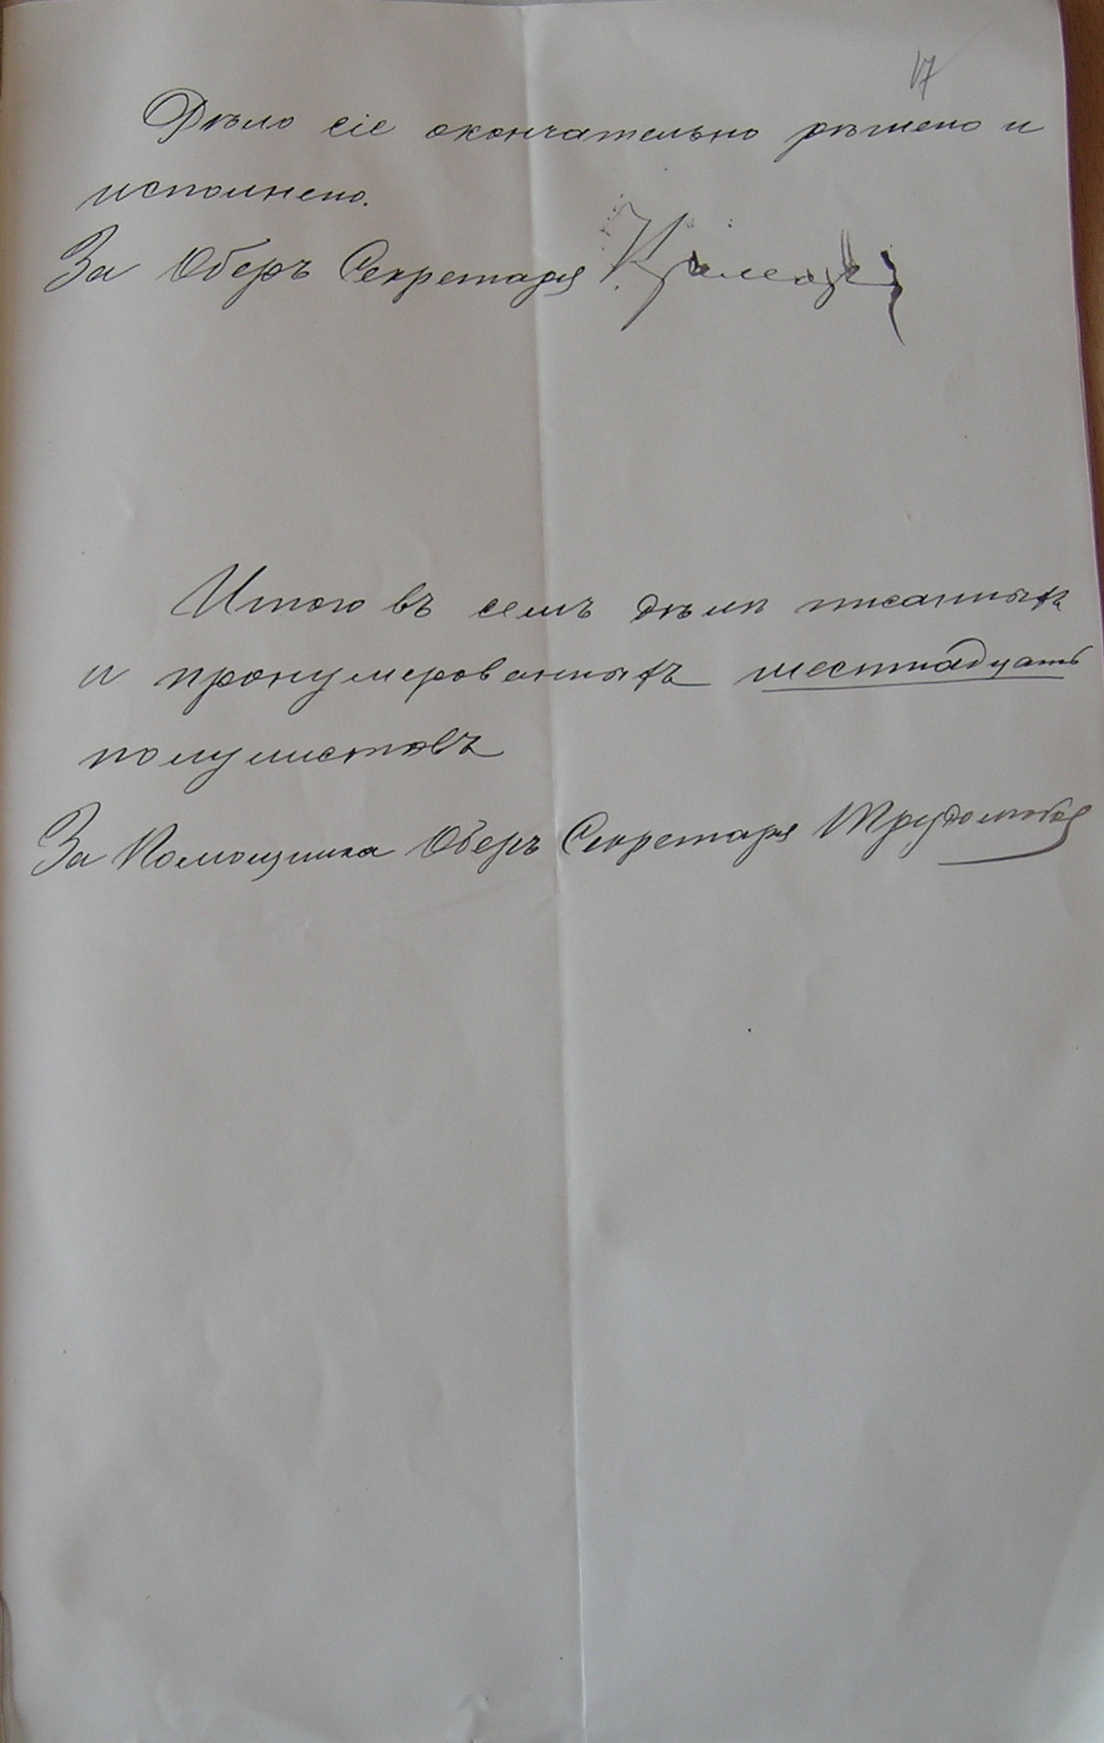 17
Дѣло сіе окончательно рѣшено и
исполнено.
За Оберъ Секретаря
Итого въ семъ дѣлѣ писанныхъ
и пронумерованныхъ шестнадцать
полулистовъ
За Помощника Оберъ Секретаря